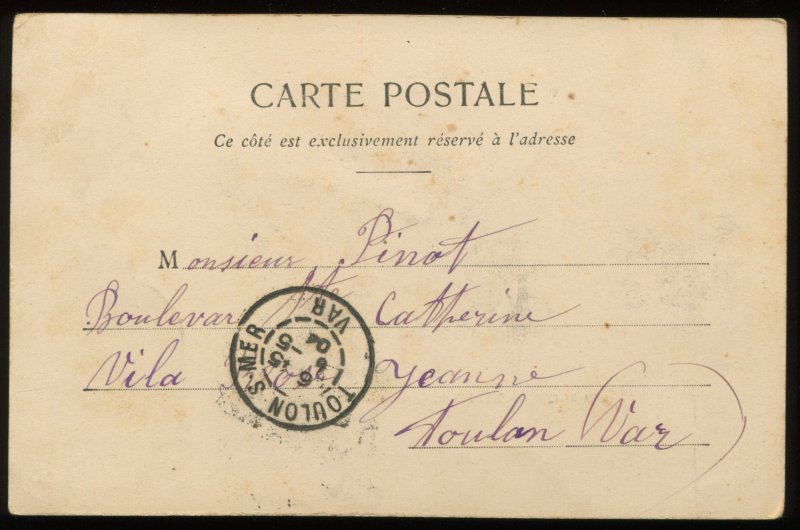 CARTE POSTALE
Ce côté est exclusivement réservé à l'adresse
Monsieur Pinot
Boulevar Ste Catherine
Vila Yeanne
Toulan (Var)
TOULON-S-MER
VAR